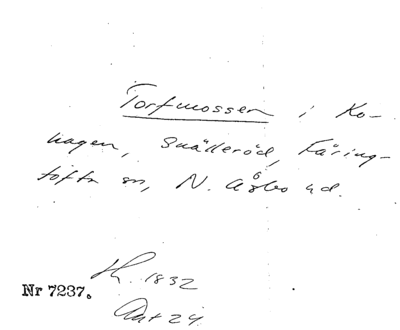 Torfmossen i Ko-
hagen, Snälleröd, Färing-
tofta sn, N. Åsbo hd.
H. 1832
Nr 7237.
Akt 24